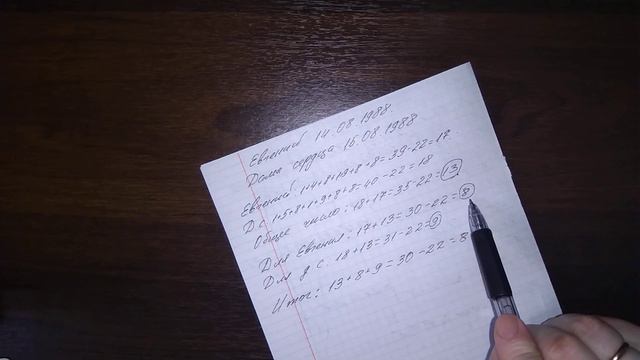 Евгений 14.08.1988.
Дама сердца 15.08.1988
Евгений: 1+4+8+19+8+8=39-22=17
Д С 1+5+8+1+9+8+8=40-22=18
Общее число: 18+17=35-22=13
Для Евгения: 17+13=30-22=8
Для Д С. 18+13=31-22=9
Итог: 13+8+9=30-22=8